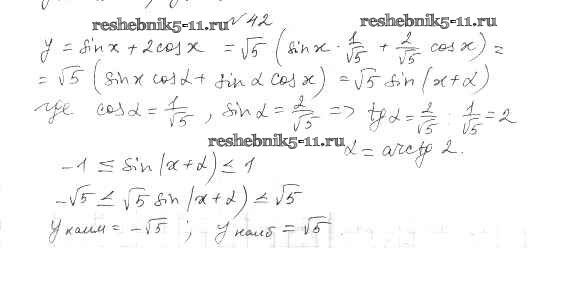 reshebnik5-11.ru №42 reshebnik5-11.ru
y = sin x + 2cos x = √5 (sin x · 1/√5 + 2/√5 cos x) =
= √5 (sin x cos α + sin α cos x) = √5 sin(x+α)
где cos α = 1/√5, sin α = 2/√5 => tg α = 2/√5 : 1/√5 = 2
reshebnik5-11.ru
α = arctg 2.
-1 ≤ sin(x+α) ≤ 1
-√5 ≤ √5 sin(x+α) ≤ √5
y наим = -√5 ; y наиб = √5.